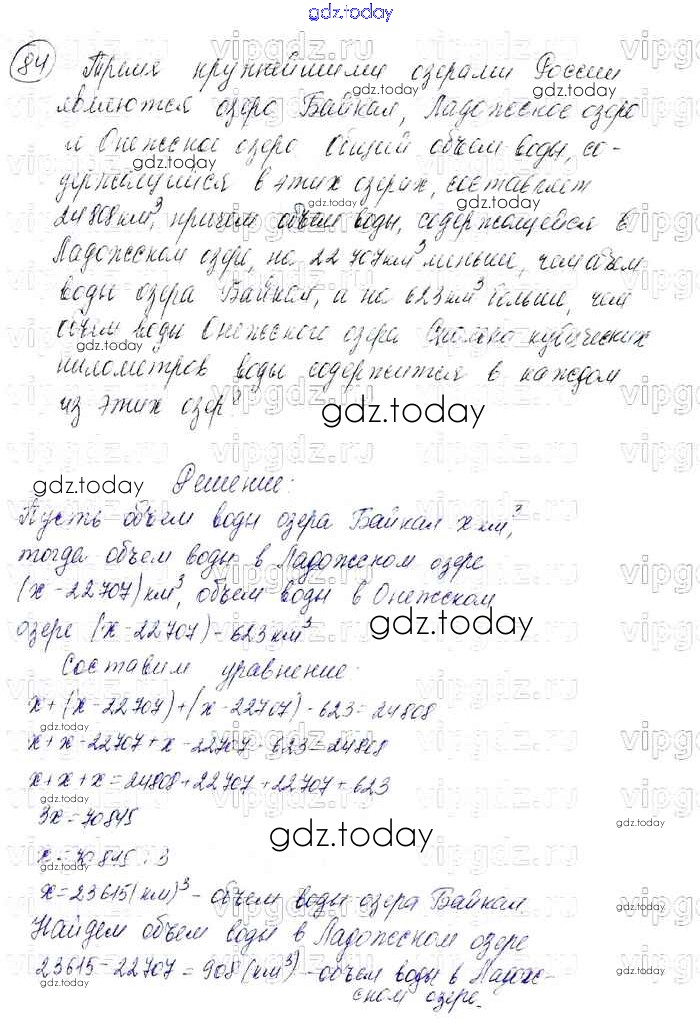 gdz.today
84 Тремя крупнейшими озерами России
являются озеро Байкал, Ладожское озеро
и Онежское озеро Общий объем воды, со-
держащийся в этих озерах, составляет
24808 км³, причем объем воды, содержащейся в
Ладожском озере, на 22707 км³ меньше, чем объем
воды озера Байкал, и на 623 км³ больше, чем
объем воды Онежского озера Сколько кубических
километров воды содержится в каждом
из этих озер?
gdz.today
Решение:
Пусть объем воды озера Байкал x км³,
тогда объем воды в Ладожском озере
(x-22707) км³, объем воды в Онежском
озере (x-22707)-623 км³
gdz.today
Составим уравнение:
x+(x-22707)+(x-22707)-623=24808
x+x-22707+x-22707-623=24808
x+x+x=24808+22707+22707+623
3x=70845
gdz.today
x=70845:3
x=23615(км)³ - объем воды озера Байкал
Найдем объем воды в Ладожском озере
23615-22707=908(км³) - объем воды в Ладож-
ском озере.